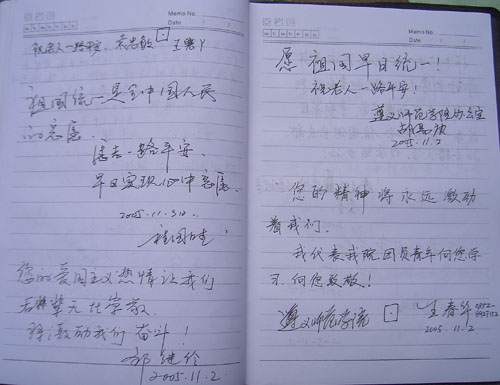 Memo No.
Date
祝老人一路平安
祖国统一是全中国人民
的意愿.
一路平安.
早日实现心中意愿.
2005.11.
您的爱国主义热情让我们
激励我们奋斗!
2005.11.2.
Memo No.
Date
愿祖国早日统一!
祝老人一路平安!
遵义师范学院办公室
2005.11.2
您的精神将永远激励
着我们.
我代表我院团员青年向您学
习.向您致敬!
遵义师范学院
王春华
2005.11.2